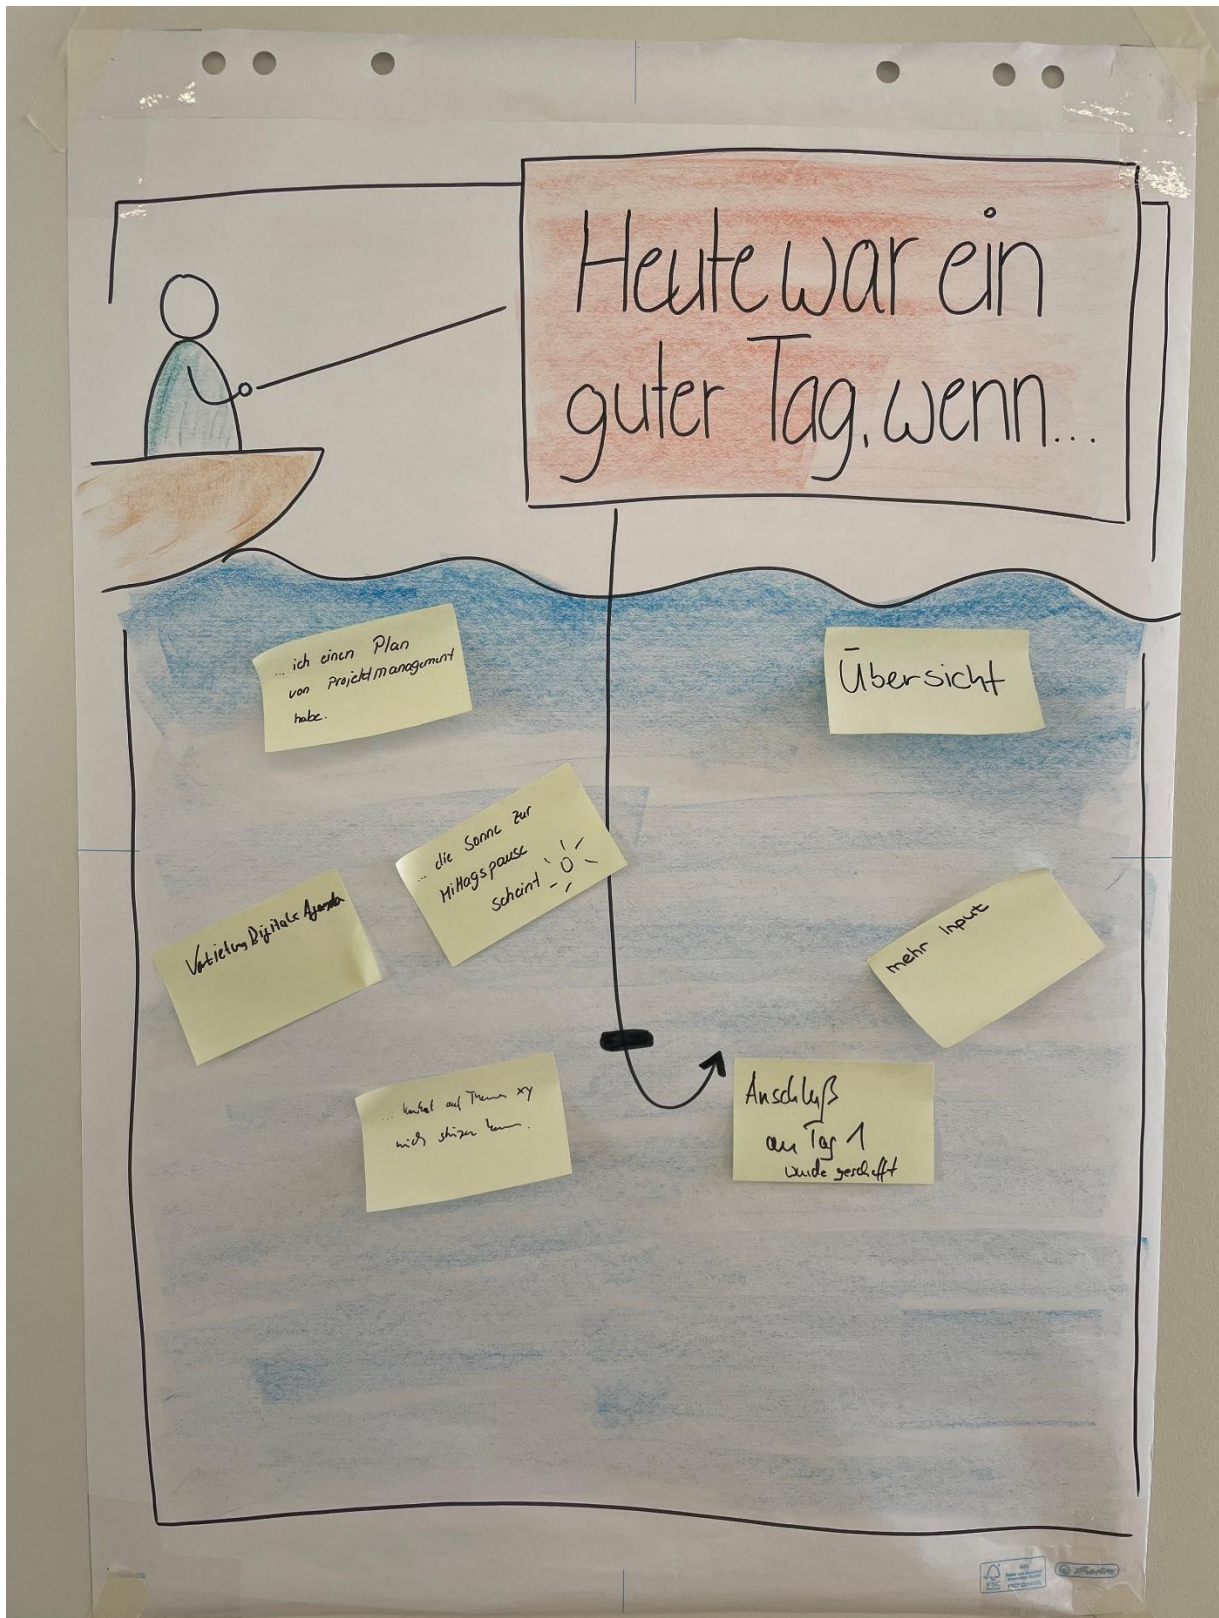 Heute war ein
guter Tag, wenn...
... ich einen Plan
von Projektmanagement
habe.
Übersicht
... die Sonne zur
Mittagspause
scheint
Vertiefung Digitale Agenda
mehr Input
... auf Themen xy
mich stürzen kann.
Anschluß
an Tag 1
wurde geschafft
FSC